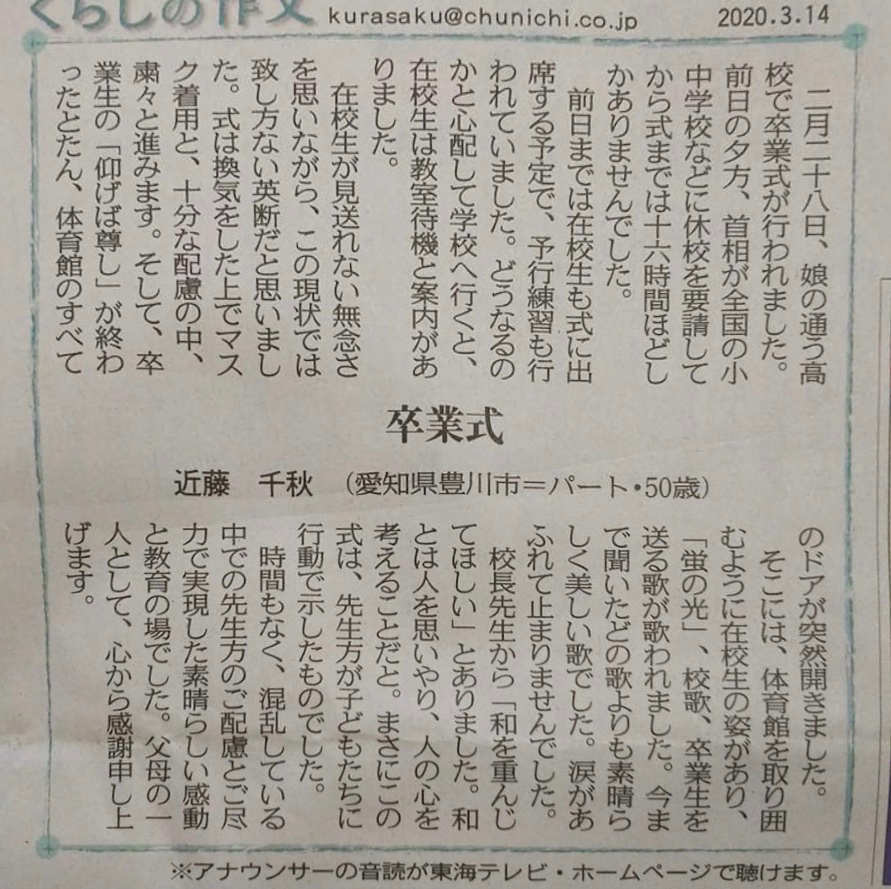 くらしの作文 kurasaku@chunichi.co.jp 2020.3.14
二月二十八日、娘の通う高
校で卒業式が行われました。
前日の夕方、首相が全国の小
中学校などに休校を要請して
から式までは十六時間ほどし
かありませんでした。
前日までは在校生も式に出
席する予定で、予行練習も行
われていました。どうなるの
かと心配して学校へ行くと、
在校生は教室待機と案内があ
りました。
在校生が見送れない無念さ
を思いながら、この現状では
致し方ない英断だと思いまし
た。式は換気をした上でマス
ク着用と、十分な配慮の中、
粛々と進みます。そして、卒
業生の「仰げば尊し」が終わ
ったとたん、体育館のすべて
卒業式
近藤 千秋 (愛知県豊川市=パート・50歳)
のドアが突然開きました。
そこには、体育館を取り囲
むように在校生の姿があり、
「蛍の光」、校歌、卒業生を
送る歌が歌われました。今ま
で聞いたどの歌よりも素晴ら
しく美しい歌でした。涙があ
ふれて止まりませんでした。
校長先生から「和を重んじ
てほしい」とありました。和
とは人を思いやり、人の心を
考えることだと。まさにこの
式は、先生方が子どもたちに
行動で示したものでした。
時間もなく、混乱している
中での先生方のご配慮とご尽
力で実現した素晴らしい感動
と教育の場でした。父母の一
人として、心から感謝申し上
げます。
※アナウンサーの音読が東海テレビ・ホームページで聴けます。